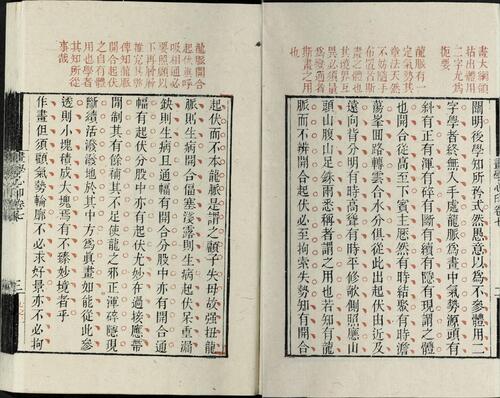 畫大綱領
拈出體用
二字尤為
扼要
龍脈有一
定氣勢其
章法天然
不妨隨手
布置若斯
畫之體也
其遠界互
異必須量
為變通者
斯畫之用
也
闡明後學知所矜式然愚意以為不參體用二
字學者終無入手處龍脈為畫中氣勢源頭有
斜有正有渾有碎有斷有續有隱有現謂之體
也開合從高至下賓主歷然有時結聚有時澹
蕩峯囘路轉雲合水分俱從此出起伏由近及
遠向背分明有時高聳有時平修欹側照應山
頭山腹山足銖兩悉稱者謂之用也若知有龍
脈而不辨開合起伏必至拘索失勢知有開合
龍脈開合
起伏與呼
吸相通必
要照顧以
下再層層
推究其弊
俾知龍脈
開合起伏
之自有體
用也學者
其知所從
事哉
起伏而不本龍脈是謂之顧子失母故强扭龍
脈則生病開合偪塞淺露則生病起伏呆重漏
缺則生病且通幅有開合分股中亦有開合通
幅有起伏分股中亦有起伏尤妙在過接應帶
間制其有餘補其不足使龍之邪正渾碎隱現
斷續活潑潑地於其中方為眞畫如能從此參
透則小塊積成大塊焉有不臻妙境者乎
作畫但須顧氣勢輪廓不必求好景亦不必拘
畫學心印卷七
三